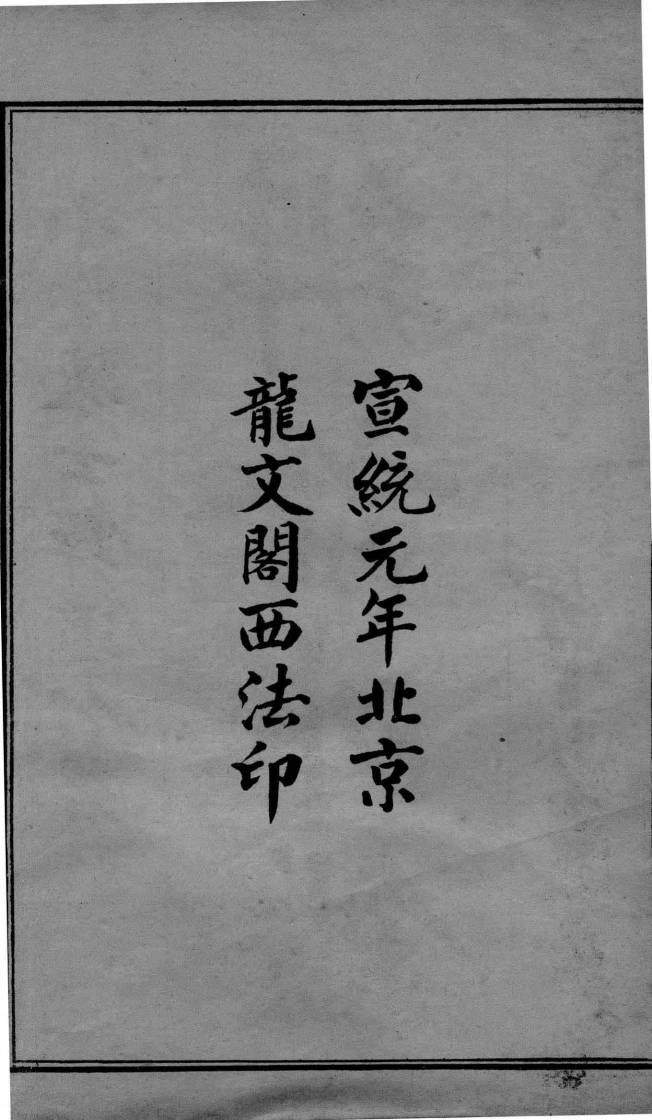 宣統元年北京
龍文閣西法印